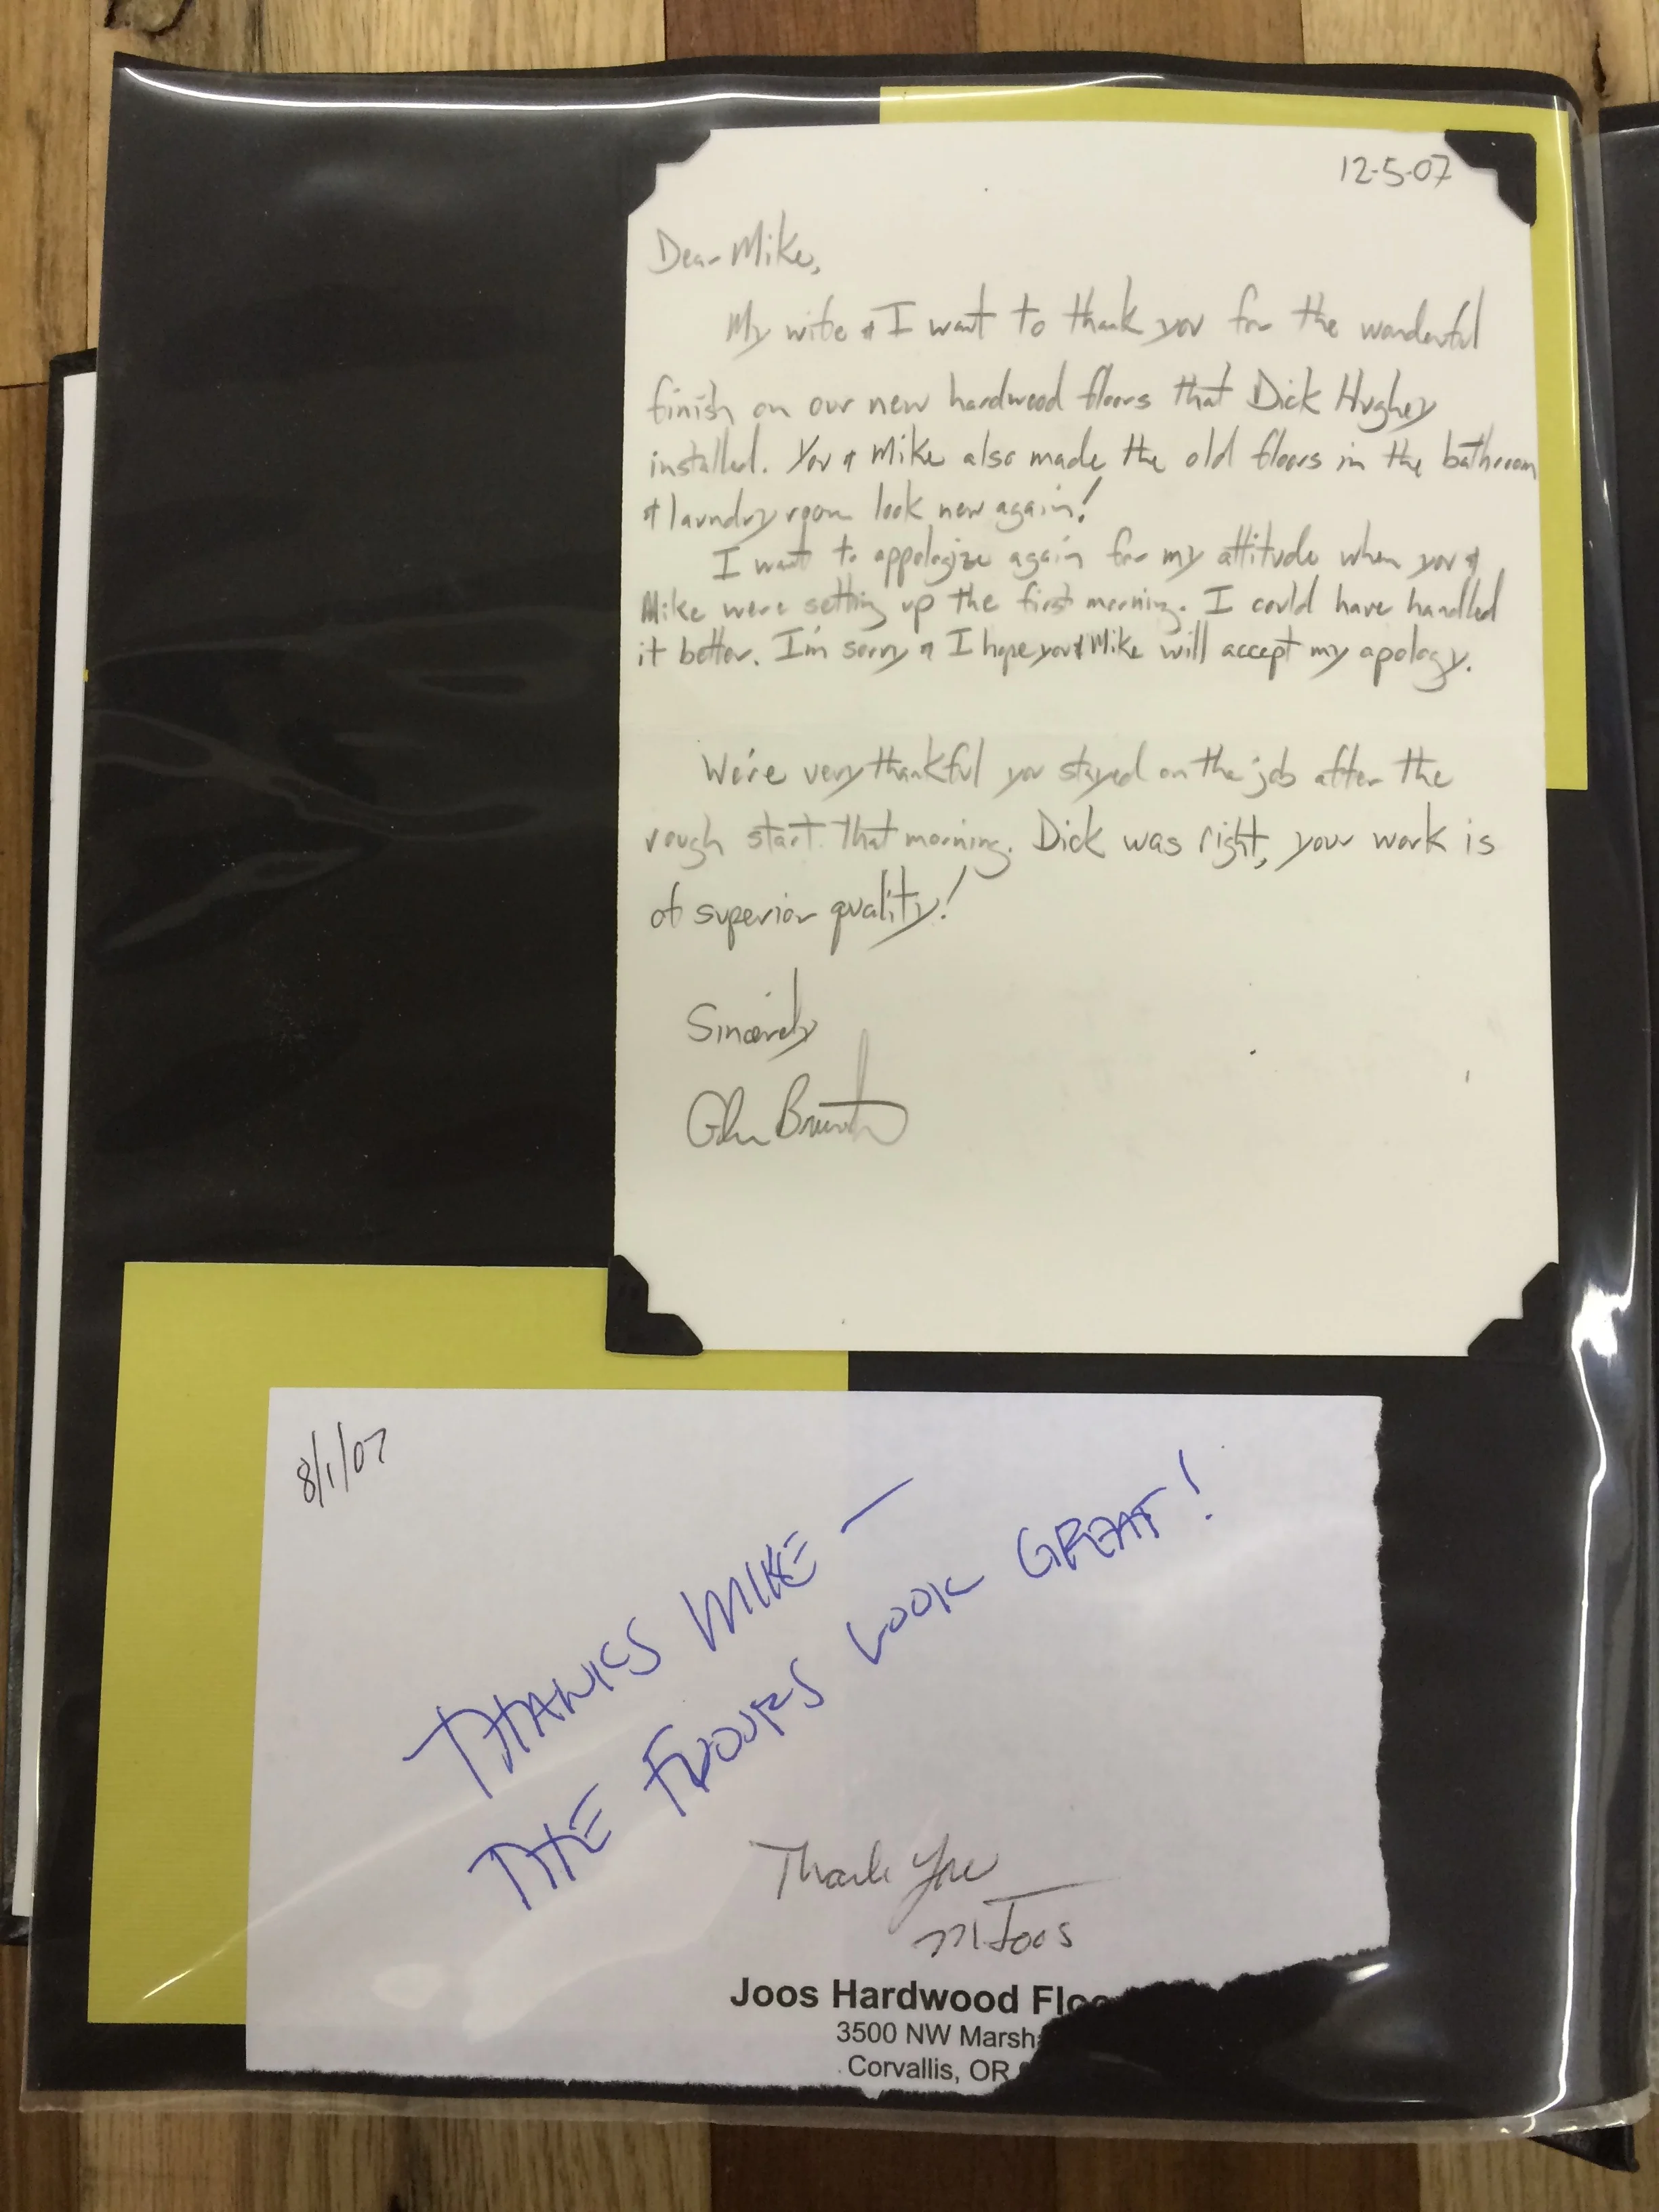 12-5-07
Dear Mike,
My wife & I want to thank you for the wonderful
finish on our new hardwood floors that Dick Hughey
installed. You & Mike also made the old floors in the bathroom
& laundry room look new again!
I want to appologize again for my attitude when you &
Mike were setting up the first morning. I could have handled
it better. I'm sorry & I hope you & Mike will accept my apology.
We're very thankful you stayed on the job after the
rough start that morning. Dick was right, your work is
of superior quality!
Sincerely
8/1/07
THANKS MIKE —
THE FLOORS LOOK GREAT!
Thank you
M Joos
Joos Hardwood Floo
3500 NW Marsh
Corvallis, OR